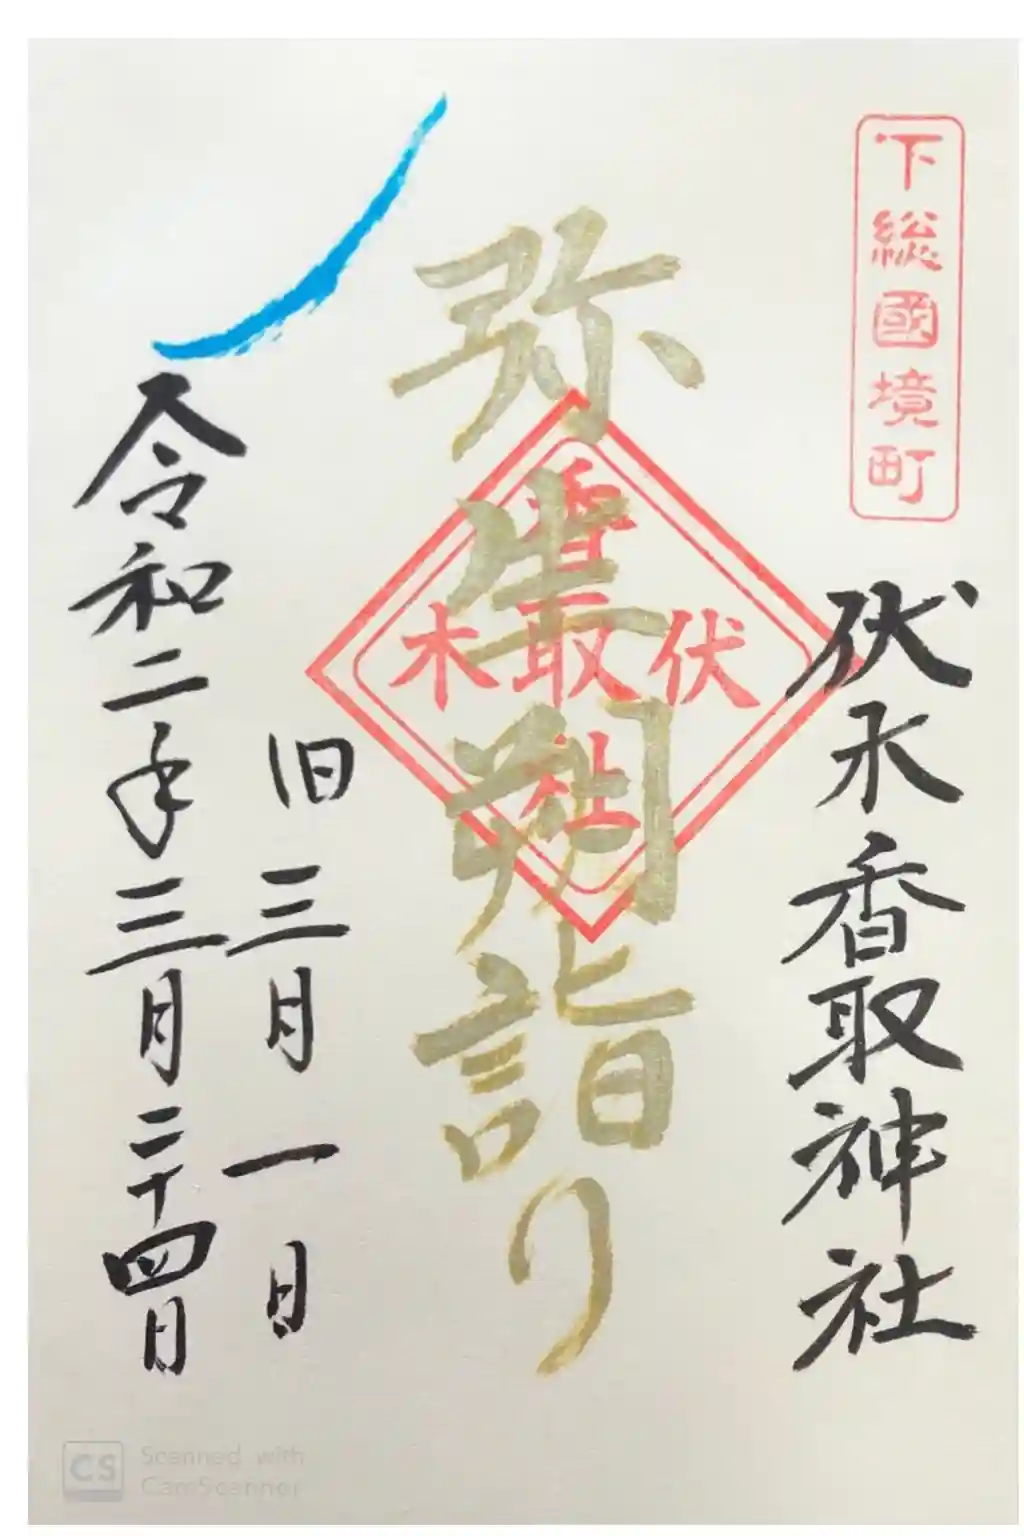 下総國境町
伏木香取神社
弥生朔詣り
香
伏取木
社
旧三月一日
令和二年三月二十四日
CS Scanned with
CamScanner